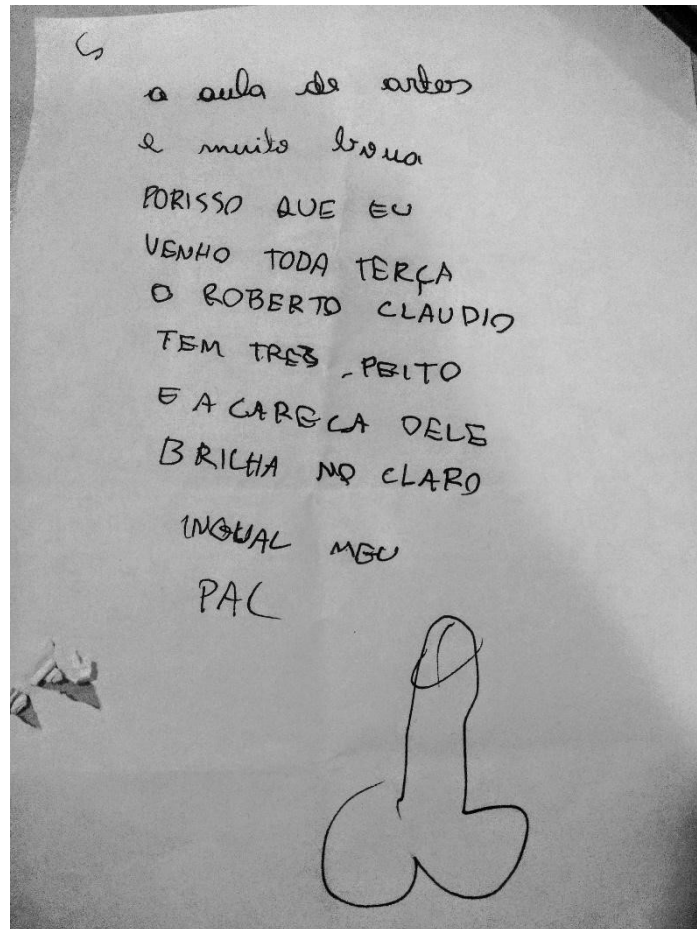 a aula de artes
e muito boua
PORISSO QUE EU
VENHO TODA TERÇA
O ROBERTO CLAUDIO
TEM TRES PEITO
E A CARECA DELE
BRILHA NO CLARO
INGUAL MEU
PAL